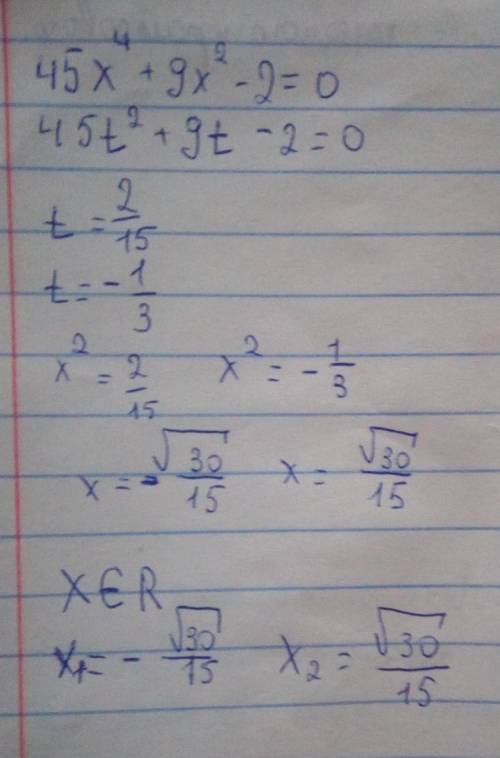 45x⁴ + 9x² - 2 = 0
45t² + 9t - 2 = 0
t = 2/15
t = - 1/3
x² = 2/15 x² = - 1/3
x = - √30/15 x = √30/15
X ∈ R
x₁ = - √30/15 x₂ = √30/15